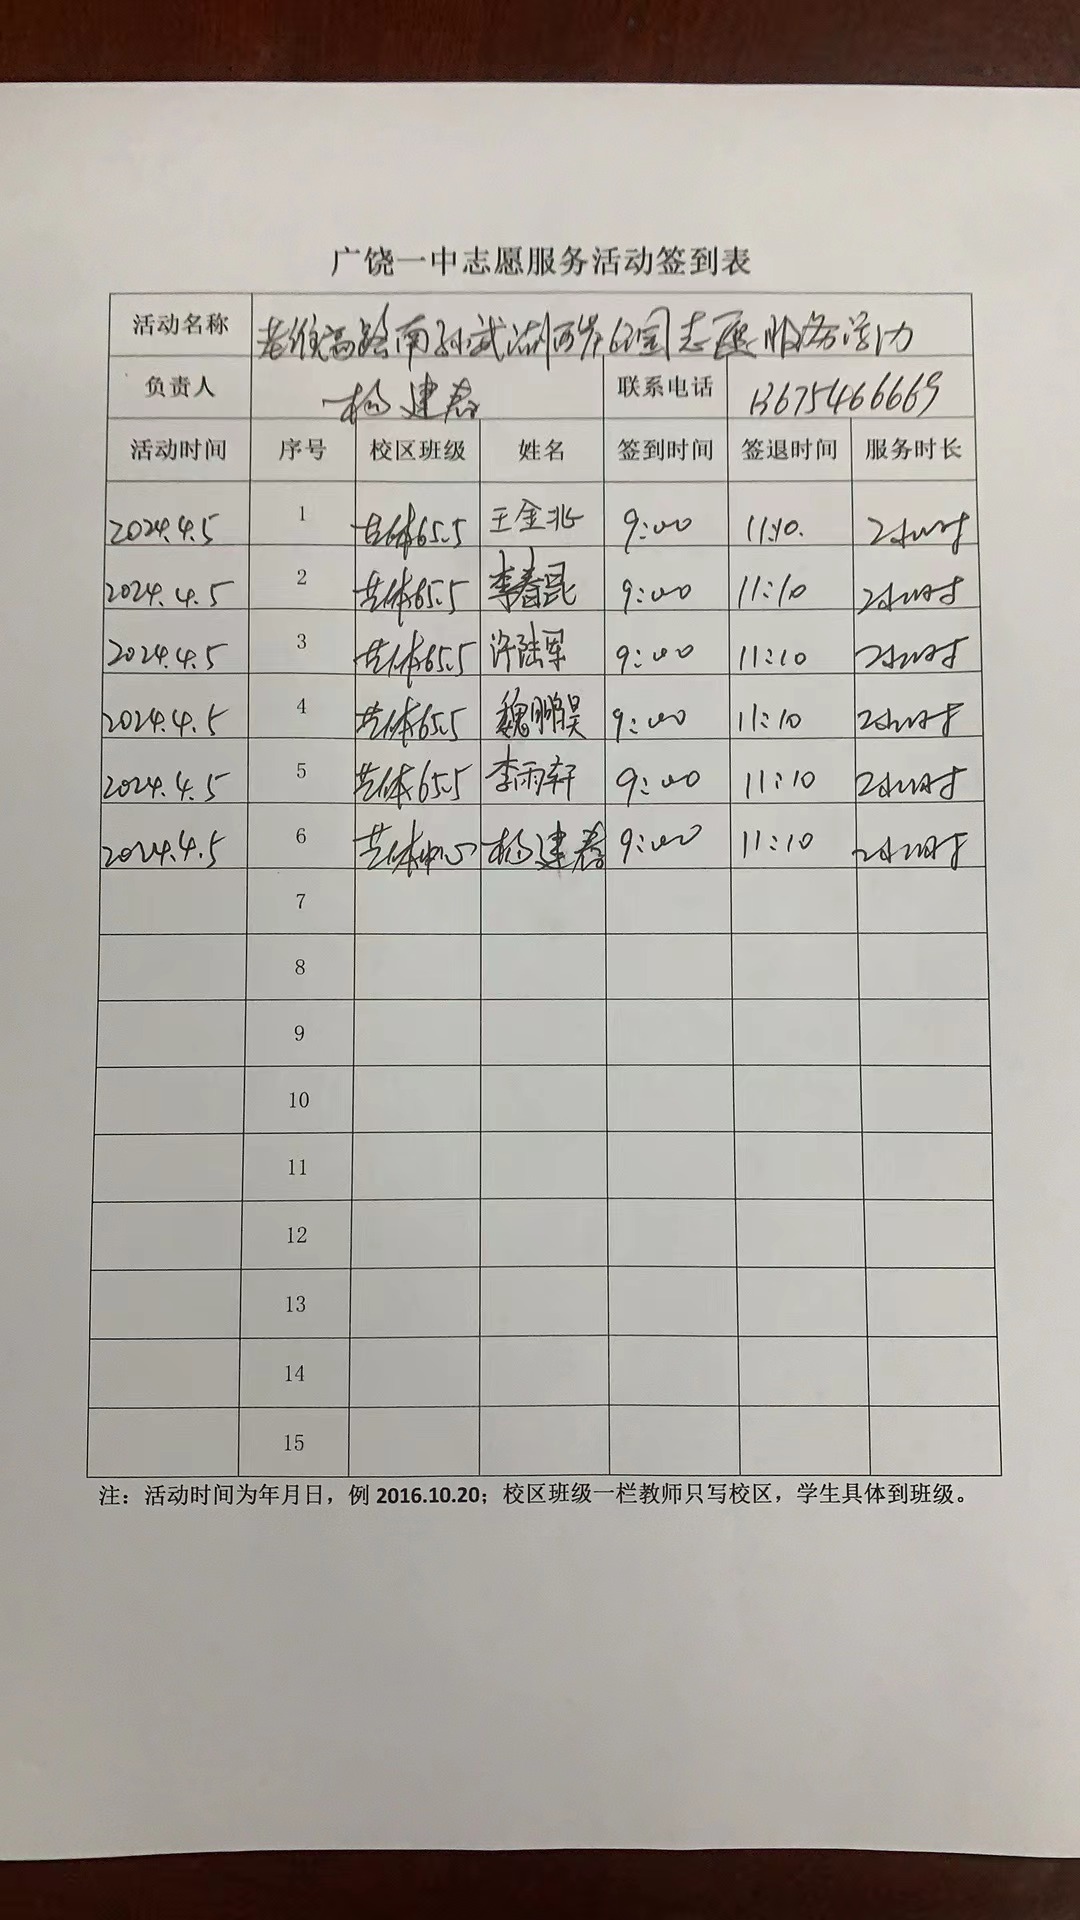 广饶一中志愿服务活动签到表
活动名称 老潍高路南孙武湖西岸公园志愿服务活动
负责人 杨建春 联系电话 13675466669
活动时间 序号 校区班级 姓名 签到时间 签退时间 服务时长
2024.4.5 1 艺体65.5 王金兆 9:00 11:10. 2小时
2024.4.5 2 艺体65.5 李春昆 9:00 11:10 2小时
2024.4.5 3 艺体65.5 许陆军 9:00 11:10 2小时
2024.4.5 4 艺体65.5 魏鹏昊 9:00 11:10 2小时
2024.4.5 5 艺体65.5 李雨轩 9:00 11:10 2小时
2024.4.5 6 艺体中心 杨建春 9:00 11:10 2小时
7
8
9
10
11
12
13
14
15
注：活动时间为年月日，例 2016.10.20；校区班级一栏教师只写校区，学生具体到班级。